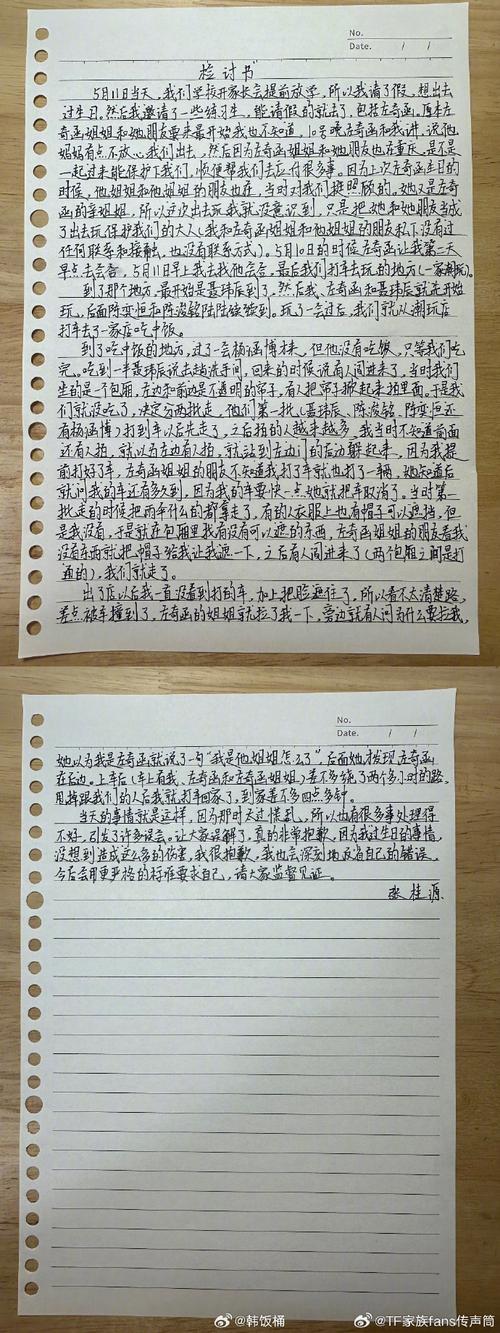 No.
Date. / /
检讨书
5月11日当天，我们学校开家长会提前放学，所以我请了假，想出去
过生日。然后我邀请了一些练习生，能请假的就去了，包括左奇函。原本左
奇函姐姐和她朋友要来最开始我也不知道，10号晚左奇函和我讲，说他
妈妈有点不放心我们出去，然后因为左奇函姐姐和她朋友也在重庆，是不是
一起过来能保护下我们，顺便帮我们去应付很多事。因为上次左奇函生日的
时候，他姐姐和他姐姐的朋友也在，当时对我们挺照顾的，她又是左奇
函的亲姐姐，所以这次出去玩我就没意识到，只是把她和她朋友当成
了出去玩保护我们的大人（我和左奇函姐姐和他姐姐的朋友私下没有过
任何联系和接触，也没有联系方式）。5月10日的时候左奇函让我第二天
早点去会合，5月11日早上我去找他会合，最后我们打车去玩的地方（一家潮玩）。
到了那个地方，最开始是聂玮辰到了，然后我、左奇函和聂玮辰就先开始
玩，后面陈奕恒和陈浚铭陆陆续续到。玩了一会过后，我们就从潮玩店
打车去了一家店吃中饭。
到了吃中饭的地方，过了一会杨涵博才来，但他没有吃饭，只等我们吃
完。吃到一半聂玮辰说出趟洗手间，回来的时候说有人闯进来了，当时我们
坐的是个包厢，左边和前边是不透明的帘子，有人把帘子掀起来拍里面。于是我
们就没吃了，决定分两批走，他们第一批（聂玮辰、陈浚铭、陈奕恒还
有杨涵博）打到车以后先走了，之后拍的人越来越多，我当时不知道前面
还有人拍，就以为左边有人拍，就站到左边门的后边躲起来，因为我提
前打好了车，左奇函姐姐的朋友不知道我打了车就也打了一辆，她知道后
就问我的车还有多久到，因为我的车要快一点她就把车取消了，当时第一
批走的时候把雨伞什么的都拿走了，有的人衣服上也有帽子可以遮挡，但
是我没有，于是就在包厢里找有没有可以遮的东西，左奇函姐姐的朋友看我
没有东西就把帽子给我让我遮一下，之后有人闯进来了（两个包厢之间是打
通的），我们就走了。
出了店以后我一直没看到打的车，加上把脸遮住了，所以看不太清楚路，
差点被车撞到了，左奇函的姐姐就拉了我一下，旁边就有人问为什么要拉我，
No.
Date. / /
她以为我是左奇函就说了一句“我是他姐姐怎么了”，后面她才发现左奇函
在后边。上车后（车上有我、左奇函和左奇函姐姐）差不多绕了两个多小时的路，
甩掉跟我们的人后我就打车回家了，到家差不多四点多钟。
当天的事情就是这样，因为那时太慌乱，所以也有很多事处理得
不好，引发了许多误会。让大家误解了，真的非常抱歉，因为我过生日的事情，
没想到造成这么多的伤害，我很抱歉，我也会深刻地反省自己的错误，
今后会用更严格的标准要求自己，请大家监督见证。
张桂源
@韩饭桶
@TF家族fans传声筒